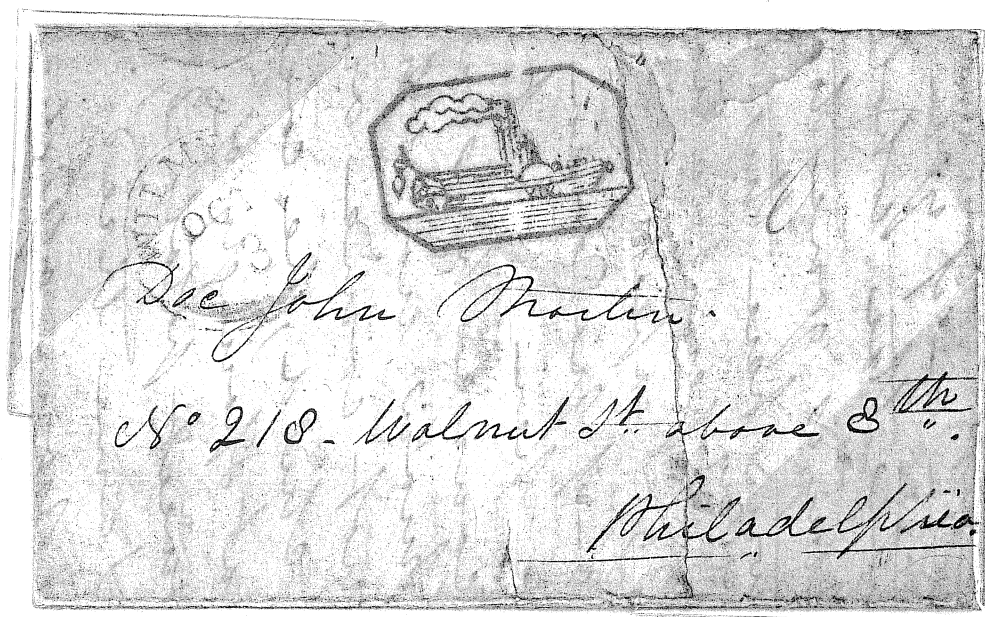 OCT
3
Doc John Martin.
No 218 - Walnut St. above 8th.
Philadelphia.